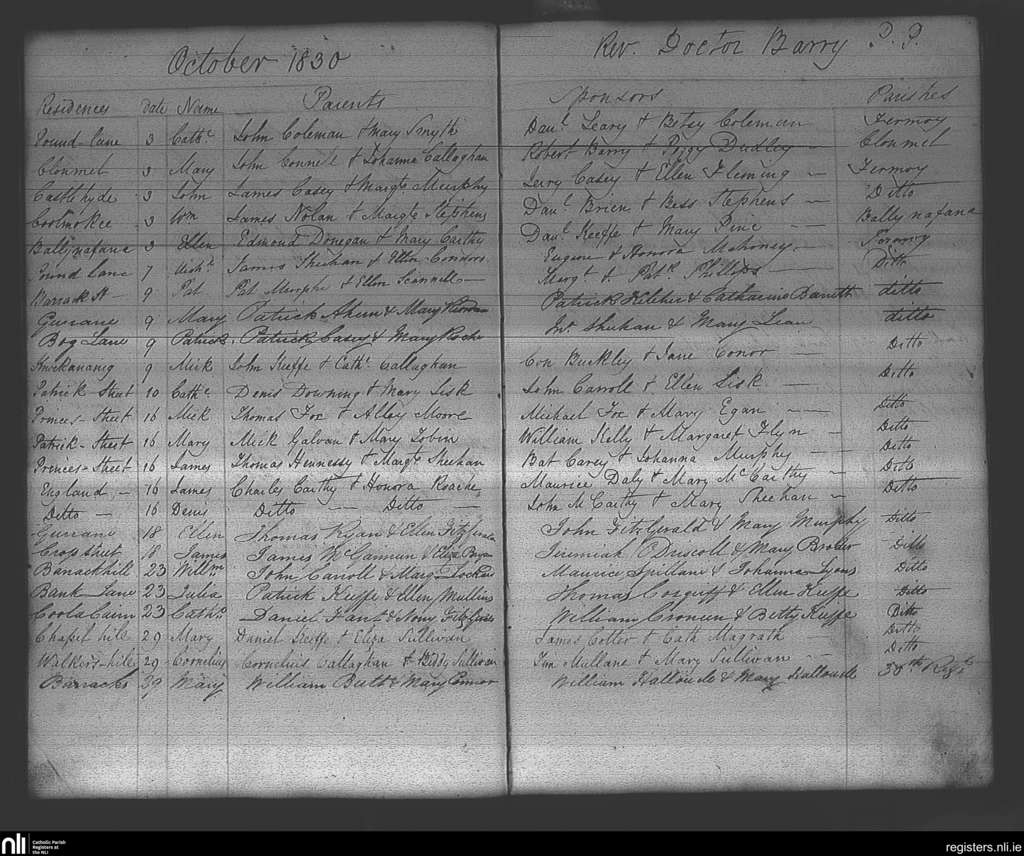 October 1830 Rev. Doctor Barry P.P.
Residences Date Name Parents Sponsors Parishes
Pound-lane 3 Cathe John Coleman & Mary Smyth Danl Leary & Betsy Coleman Fermoy
Clonmel 3 Mary John Connell & Johanna Callaghan Robert Barry & Peggy Dudley Clonmel
Castlehyde 3 John James Casey & Margte Murphy Jerry Casey & Ellen Fleming Fermoy
3 Wm James Nolan & Margte Stephens Danl Brien & Bess Stephens Ditto
Ballynafana 3 Ellen Edmond Donegan & Mary Carthy Danl Keeffe & Mary Pine Ballynafana
lane 7 James Sheehan & Ellen Connors Eugene & Honora Mahoney
Barrack St 9 Pat Pat Murphy & Ellen Scannell & Patk Phillips Ditto
9 Mary Patrick Ahern & Mary Patrick Keleher & Catharine Barrett ditto
Bog Lane 9 Patrick Patrick Casey & Mary Roche Sheehan & Mary Lean ditto
9 Mick John Keeffe & Cath. Callaghan Con Buckley & Jane Conor Ditto
Patrick Street 10 Cathe Denis Downing & Mary Lisk John Carroll & Ellen Lisk Ditto
Princes-Street 16 Mick Thomas Fox & Alley Moore Michael Fox & Mary Egan Ditto
Patrick-Street 16 Mary Mick Galvan & Mary Tobin William Kelly & Margaret Flyn Ditto
Princes-Street 16 James Thomas Hennessy & Margte Sheehan Bat Carey & Johanna Murphy Ditto
England 16 James Charles Carthy & Honora Roache Maurice Daly & Mary McCarthy Ditto
Ditto 16 Denis Ditto Ditto John McCarthy & Mary Sheehan Ditto
18 Ellen Thomas Ryan & Ellen Fitzgerald John Fitzgerald & Mary Murphy Ditto
Cross street 18 James James McGannun & Eliza Bryan Jeremiah O'Driscoll & Mary Ditto
Barrackhill 23 Willm John Carroll & Margt Maurice Spillane & Johanna Lyons Ditto
Bank Lane 23 Julia Patrick Keeffe & Ellen Mullins Thomas & Ellen Keeffe Ditto
Coola Cairn 23 Cathe Daniel Fant & Nony William Croneen & Betty Keeffe Ditto
Chapel hill 29 Mary Daniel Keeffe & Eliza Sullivan James Cotter & Cath Magrath Ditto
Walkers-hill 29 Cornelius Cornelius Callaghan & Biddy Sullivan Mullane & Mary Sullivan Ditto
Barracks 29 Mary William Butt & Mary Connor William & Mary 38th Regt
nli Catholic Parish
Registers at
the NLI
registers.nli.ie